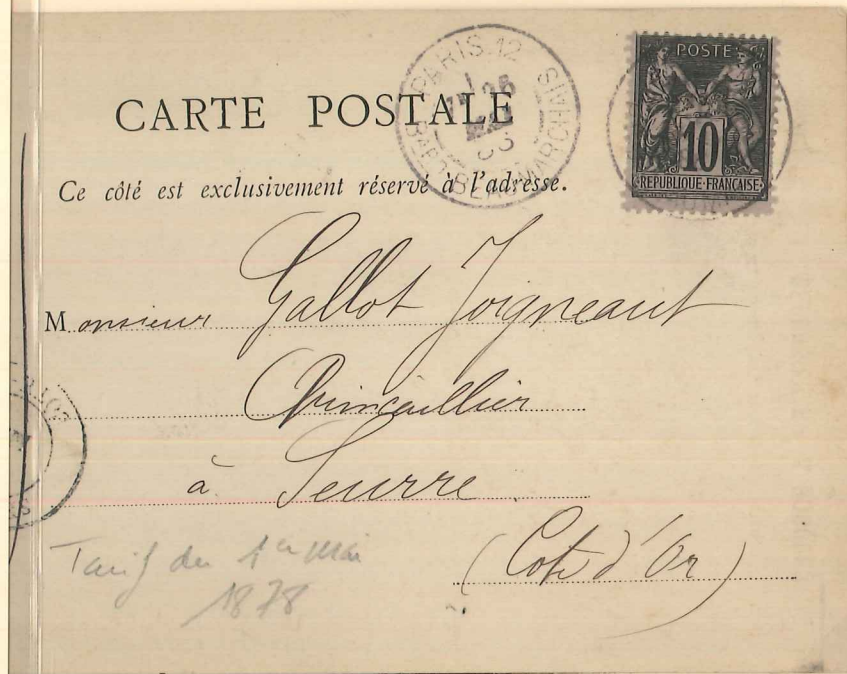 PARIS 12
BARD BEAUMARCHAIS
POSTE
10
REPUBLIQUE FRANÇAISE
CARTE POSTALE
Ce côté est exclusivement réservé à l'adresse.
Monsieur Gallot Joigneaut
Quincaillier
à Seurre
(Cote d'Or)
Tarif du 1er Mai
1878